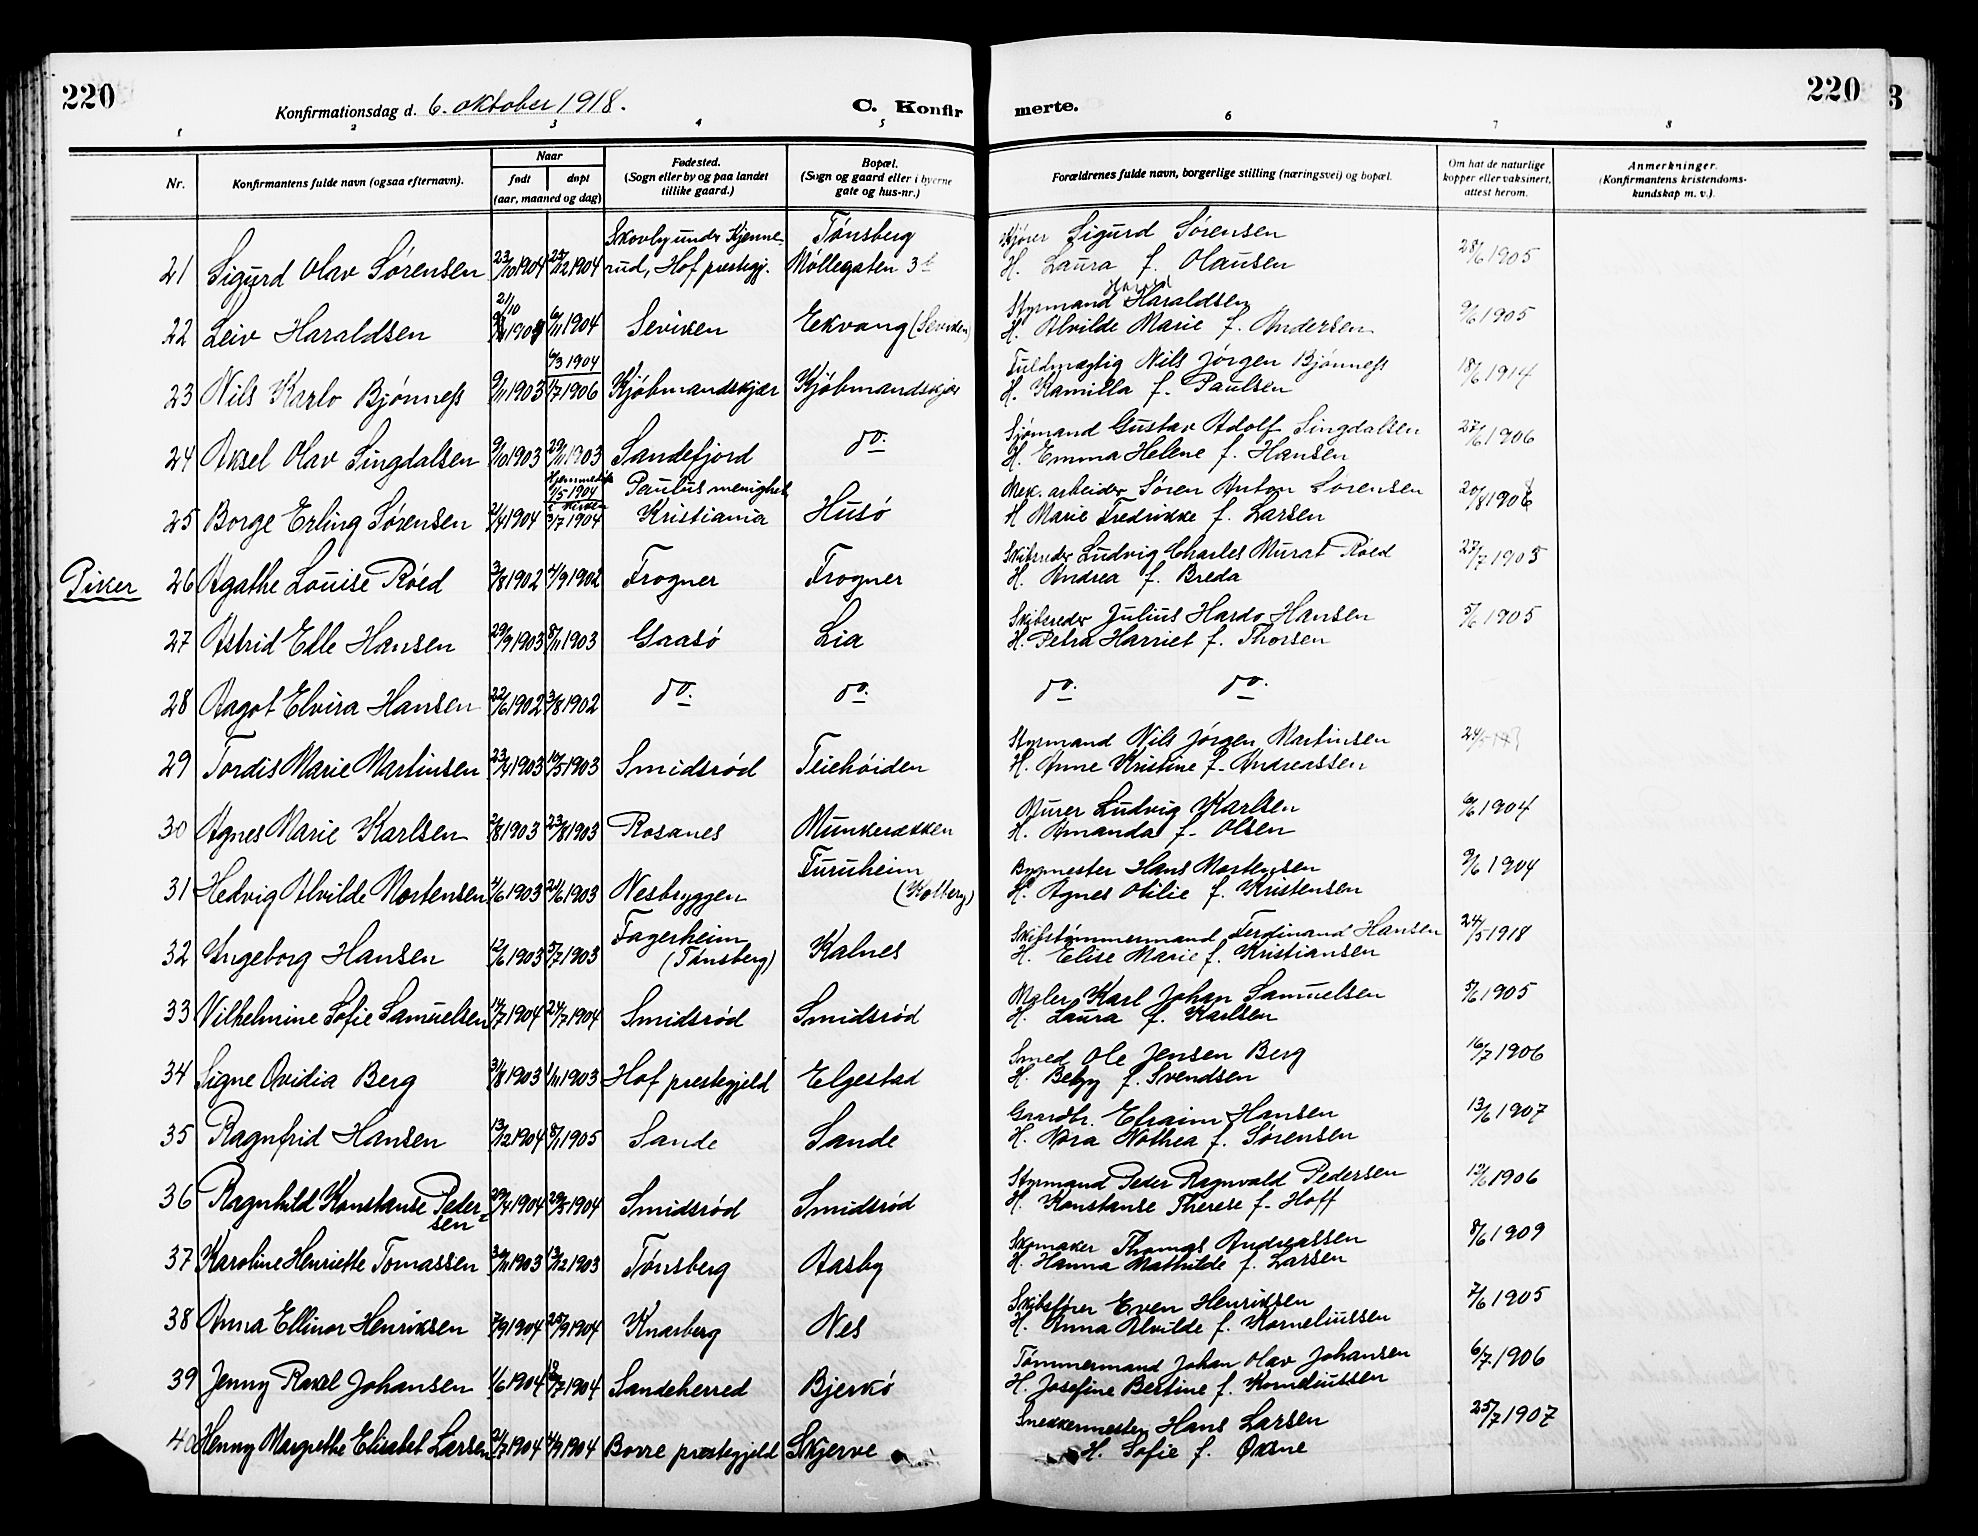 220
Konfirmationsdag d. 6. oktober 1918.
C. Konfir
merte.
220
3
1 2 3 4 5 6 7 8
Nr.
Konfirmantens fulde navn (ogsaa efternavn).
Naar
født
døpt
(aar, maaned og dag)
Fødested.
(Sogn eller by og paa landet
tillike gaard.)
Bopæl.
(Sogn og gaard eller i byerne
gate og hus-nr.)
Forældrenes fulde navn, borgerlige stilling (næringsvei) og bopæl.
Om hat de naturlige
kopper eller vaksinert,
attest herom.
Anmerkninger.
(Konfirmantens kristendoms-
kundskap m. v.)
Skovby under Kjenne- Tønsberg Kjører Sigurd Sørensen
21 Sigurd Olav Sørensen 23/10 1904 1904 rud, Hof prestegj. Møllegaten 3 H. Laura f. Olausen 28/6 1905
21/10 Styrmand Harald Haraldsen
22 Leiv Haraldsen 6/11 1904 Seviken Ekvang (Seviken) H. Alvilde Marie f. Andersen 9/6 1905
6/3 1904 Fuldmægtig Nils Jørgen Bjønness
23 Nils Karlo Bjønness 9/11 1903 1/7 1906 Kjøbmandskjær Kjøbmandskjær H. Kamilla f. Paulsen 18/6 1914
Sjømand Gustav Adolf Lingdalsen
24 Aksel Olav Lingdalsen 9/10 1903 29/11 1903 Sandefjord do. H. Emma Helene f. Hansen 27/6 1906
Hjemmedøp 1/5 1904 Paulus menighet Mek. arbeider Søren Anton Sørensen
25 Borge Erling Sørensen 2/4 1904 i kirken 3/7 1904 Kristiania Husø H. Marie Fredrikke f. Larsen
Piker
Skibsreder Ludvig Charles Murat Røed
26 Agathe Louise Røed 3/8 1902 4/9 1902 Frogner Frogner H. Andrea f. Breda 27/7 1903
Skibsreder Julius Hardo Hansen
27 Astrid Edle Hansen 29/9 1903 8/11 1903 Gaasø Lia H. Petra Harriet f. Thorsen 5/6 1905
28 Aagot Elvira Hansen 22/6 1902 3/8 1902 do. do. do. do.
Styrmand Nils Jørgen Martinsen
29 Tordis Marie Martinsen 23/4 1903 10/5 1903 Smidsrød Teiehøiden H. Anne Kristine f. Andreassen
Murer Ludvig Karlsen
30 Agnes Marie Karlsen 2/8 1903 23/8 1903 Rosanes Munkerekken H. Amanda f. Olsen 1904
Furuheim Bygmester Hans Mortensen
31 Hedvig Alvilde Mortensen 4/6 1903 21/6 1903 Nesbryggen (Kolberg) H. Agnes Otilie f. Kristensen 9/6 1904
Fagerheim Skibstømmermand Ferdinand Hansen
32 Ingeborg Hansen 12/6 1903 5/7 1903 (Tønsberg) Kalnes H. Elise Marie f. Kristiansen 24/5 1918
Maler Karl Johan Samuelsen
33 Vilhelmine Sofie Samuelsen 14/7 1904 24/7 1904 Smidsrød Smidsrød H. Laura f. Karlsen 5/6 1905
Smed Ole Jensen Berg
34 Signe Ovidia Berg 31/8 1903 1/11 1903 Hof prestegjeld Elgestad H. Betzy f. Svendsen 16/7 1906
Gaardbr. Efraim Hansen
35 Ragnfrid Hansen 13/12 1904 8/1 1905 Sande Sande H. Nora Mathea f. Sørensen 13/6 1907
Styrmand Peder Ragnvald Pedersen
36 Ragnhild Konstanse Peder-
sen 20/4 1904 29/5 1904 Smidsrød Smidsrød H. Konstanse Therese f. Hoff 12/6 1906
Skomaker Thomas Andreassen
37 Karoline Henriette Tomassen 30/11 1903 13/12 1903 Tønsberg Aasby H. Hanna Mathilde f. Larsen 8/6 1909
Skibsfører Even Henriksen
38 Anna Ellinor Henriksen 7/9 1904 25/9 1904 Knarberg Nes H. Anna Alvilde f. Korneliussen 7/6 1905
Tømmermand Johan Olav Johansen
39 Jenny Rakel Johansen 1/6 1904 10/7 1904 Sandeherred Bjerkø H. Josefine Bertine f. Korneliussen 6/7 1906
Snekkermester Hans Larsen
40 Henny Margrethe Elisabet Larsen 21/7 1904 4/9 1904 Borre prestegjeld Skjerve H. Sofie f. Oxne 25/7 1907